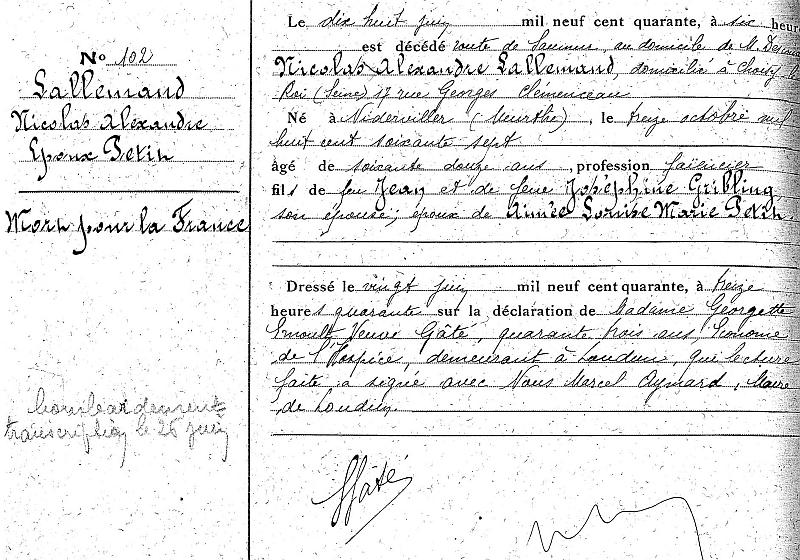 No 102
Lallemand
Nicolas Alexandre
Epoux Petin
Mort pour la France
bombardement
transcription le 26 juin
Le dix huit juin mil neuf cent quarante, à six heures
est décédé route de Saumur, au domicile de M.
Nicolas Alexandre Lallemand, domicilié à Choisy le
Roi (Seine) 17 rue Georges Clemenceau
Né à Niderviller (Meurthe), le treize octobre mil
huit cent soixante sept
âgé de soixante douze ans, profession faïencier
fils de feu Jean et de feue Joséphine Gribling
son épouse; époux de Aimée Louise Marie Petin
Dressé le vingt juin mil neuf cent quarante, à treize
heures quarante sur la déclaration de Madame Georgette
Ernoult Veuve Gâté, quarante trois ans, Econome
de l'Hospice, demeurant à Loudun, qui lecture
faite, a signé avec Nous Marcel Aymard, Maire
de Loudun.
Gâté